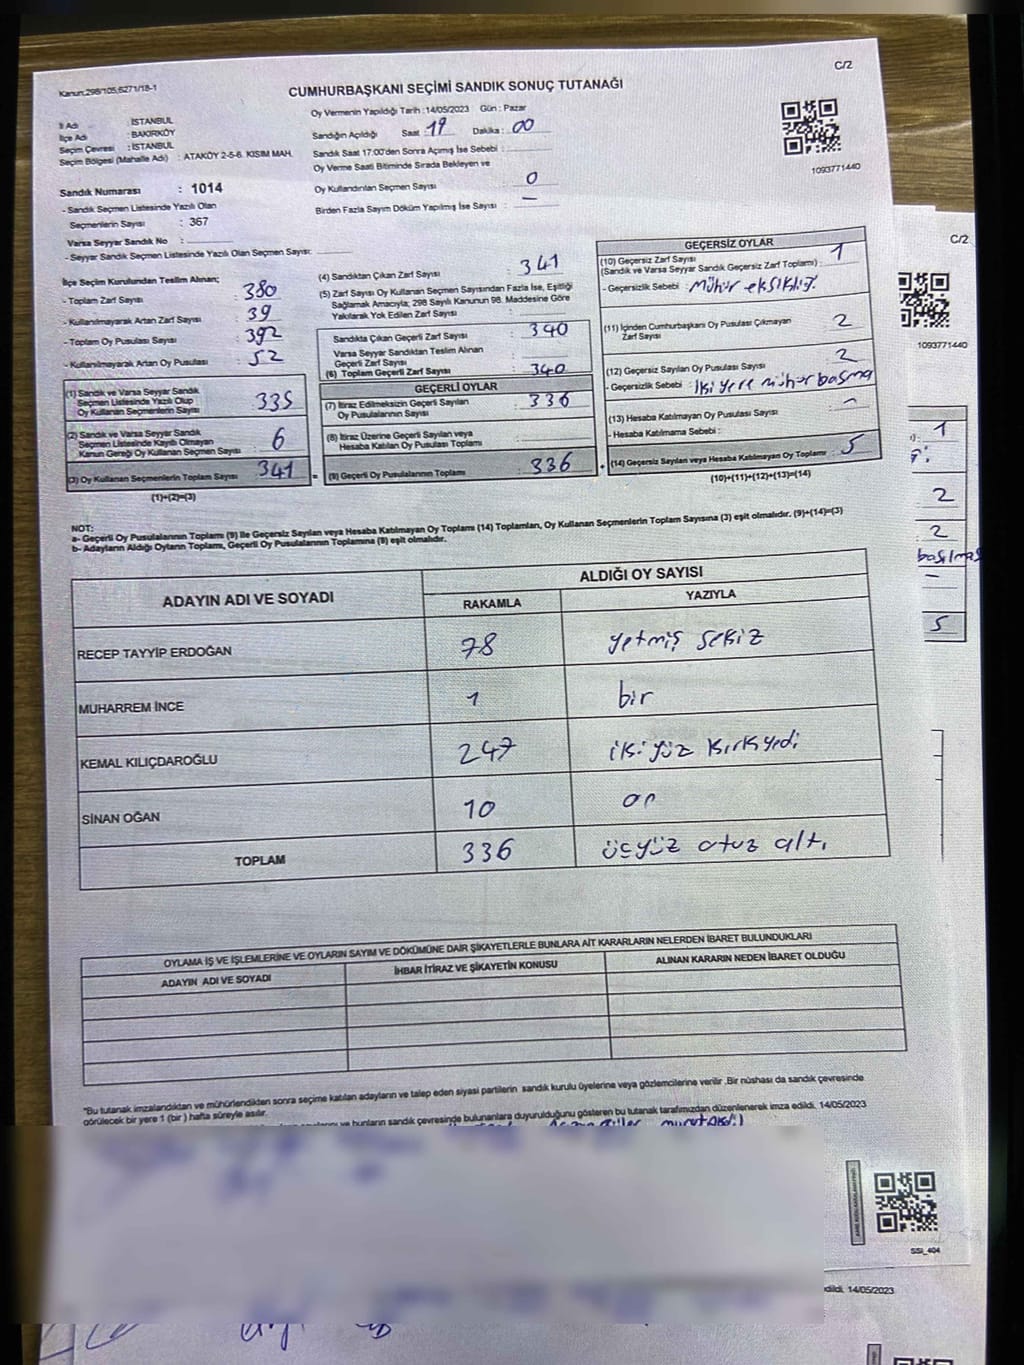 C/2
Kanun:298/105,6271/18-1
CUMHURBAŞKANI SEÇİMİ SANDIK SONUÇ TUTANAĞI
İl Adı : İSTANBUL
İlçe Adı : BAKIRKÖY
Seçim Çevresi : İSTANBUL
Seçim Bölgesi (Mahalle Adı) : ATAKÖY 2-5-6. KISIM MAH.
Oy Vermenin Yapıldığı Tarih : 14/05/2023 Gün : Pazar
Sandığın Açıldığı Saat : 19 Dakika : 00
Sandık Saat 17:00'den Sonra Açımış İse Sebebi :
Oy Verme Saati Bitiminde Sırada Bekleyen ve
Oy Kullandırılan Seçmen Sayısı : 0
Birden Fazla Sayım Döküm Yapılmış İse Sayısı : —
1093771440
Sandık Numarası : 1014
- Sandık Seçmen Listesinde Yazılı Olan
Seçmenlerin Sayısı : 367
Varsa Seyyar Sandık No :
- Seyyar Sandık Seçmen Listesinde Yazılı Olan Seçmen Sayısı:
İlçe Seçim Kurulundan Teslim Alınan;
- Toplam Zarf Sayısı : 380
- Kullanılmayarak Artan Zarf Sayısı : 39
- Toplam Oy Pusulası Sayısı : 392
- Kullanılmayarak Artan Oy Pusulası : 52
(1) Sandık ve Varsa Seyyar Sandık
Seçmen Listesinde Yazılı Olup
Oy Kullanan Seçmenlerin Sayısı 335
(2) Sandık ve Varsa Seyyar Sandık
Seçmen Listesinde Kayıtlı Olmayan
Kanun Gereği Oy Kullanan Seçmen Sayısı : 6
(3) Oy Kullanan Seçmenlerin Toplam Sayısı 341
(1)+(2)=(3)
(4) Sandıktan Çıkan Zarf Sayısı : 341
(5) Zarf Sayısı Oy Kullanan Seçmen Sayısından Fazla İse, Eşitliği
Sağlamak Amacıyla; 298 Sayılı Kanunun 98. Maddesine Göre
Yakılarak Yok Edilen Zarf Sayısı :
Sandıkta Çıkan Geçerli Zarf Sayısı : 340
Varsa Seyyar Sandıktan Teslim Alınan
Geçerli Zarf Sayısı :
(6) Toplam Geçerli Zarf Sayısı : 340
GEÇERLİ OYLAR
(7) İtiraz Edilmeksizin Geçerli Sayılan
Oy Pusulalarının Sayısı : 336
(8) İtiraz Üzerine Geçerli Sayılan veya
Hesaba Katılan Oy Pusulası Toplamı :
= (9) Geçerli Oy Pusulalarının Toplamı 336
GEÇERSİZ OYLAR
(10) Geçersiz Zarf Sayısı
(Sandık ve Varsa Seyyar Sandık Geçersiz Zarf Toplamı) : 1
- Geçersizlik Sebebi : Mühür eksikliği.
(11) İçinden Cumhurbaşkanı Oy Pusulası Çıkmayan
Zarf Sayısı 2
(12) Geçersiz Sayılan Oy Pusulası Sayısı : 2
- Geçersizlik Sebebi : İki yere mühür basma
(13) Hesaba Katılmayan Oy Pusulası Sayısı : —
- Hesaba Katılmama Sebebi :
+ (14) Geçersiz Sayılan veya Hesaba Katılmayan Oy Toplamı : 5
(10)+(11)+(12)+(13)=(14)
NOT:
a- Geçerli Oy Pusulalarının Toplamı (9) ile Geçersiz Sayılan veya Hesaba Katılmayan Oy Toplamı (14) Toplamları, Oy Kullanan Seçmenlerin Toplam Sayısına (3) eşit olmalıdır. (9)+(14)=(3)
b- Adayların Aldığı Oyların Toplamı, Geçerli Oy Pusulalarının Toplamına (9) eşit olmalıdır.
ADAYIN ADI VE SOYADI
ALDIĞI OY SAYISI
RAKAMLA YAZIYLA
RECEP TAYYİP ERDOĞAN 78 yetmiş sekiz
MUHARREM İNCE 1 bir
KEMAL KILIÇDAROĞLU 247 ikiyüz kırkyedi
SİNAN OĞAN 10 on
TOPLAM 336 üçyüz otuz altı
OYLAMA İŞ VE İŞLEMLERİNE VE OYLARIN SAYIM VE DÖKÜMÜNE DAİR ŞİKAYETLERLE BUNLARA AİT KARARLARIN NELERDEN İBARET BULUNDUKLARI
ADAYIN ADI VE SOYADI İHBAR İTİRAZ VE ŞİKAYETİN KONUSU ALINAN KARARIN NEDEN İBARET OLDUĞU
*Bu tutanak imzalandıktan ve mühürlendikten sonra seçime katılan adayların ve talep eden siyasi partilerin sandık kurulu üyelerine veya gözlemcilerine verilir .Bir nüshası da sandık çevresinde
görülecek bir yere 1 (bir ) hafta süreyle asılır.
ve bunların sandık çevresinde bulunanlara duyurulduğunu gösteren bu tutanak tarafımızdan düzenlenerek imza edildi. 14/05/2023
SSİ_404
C/2
1093771440
1
2
2
basılması
—
5
edildi. 14/05/2023